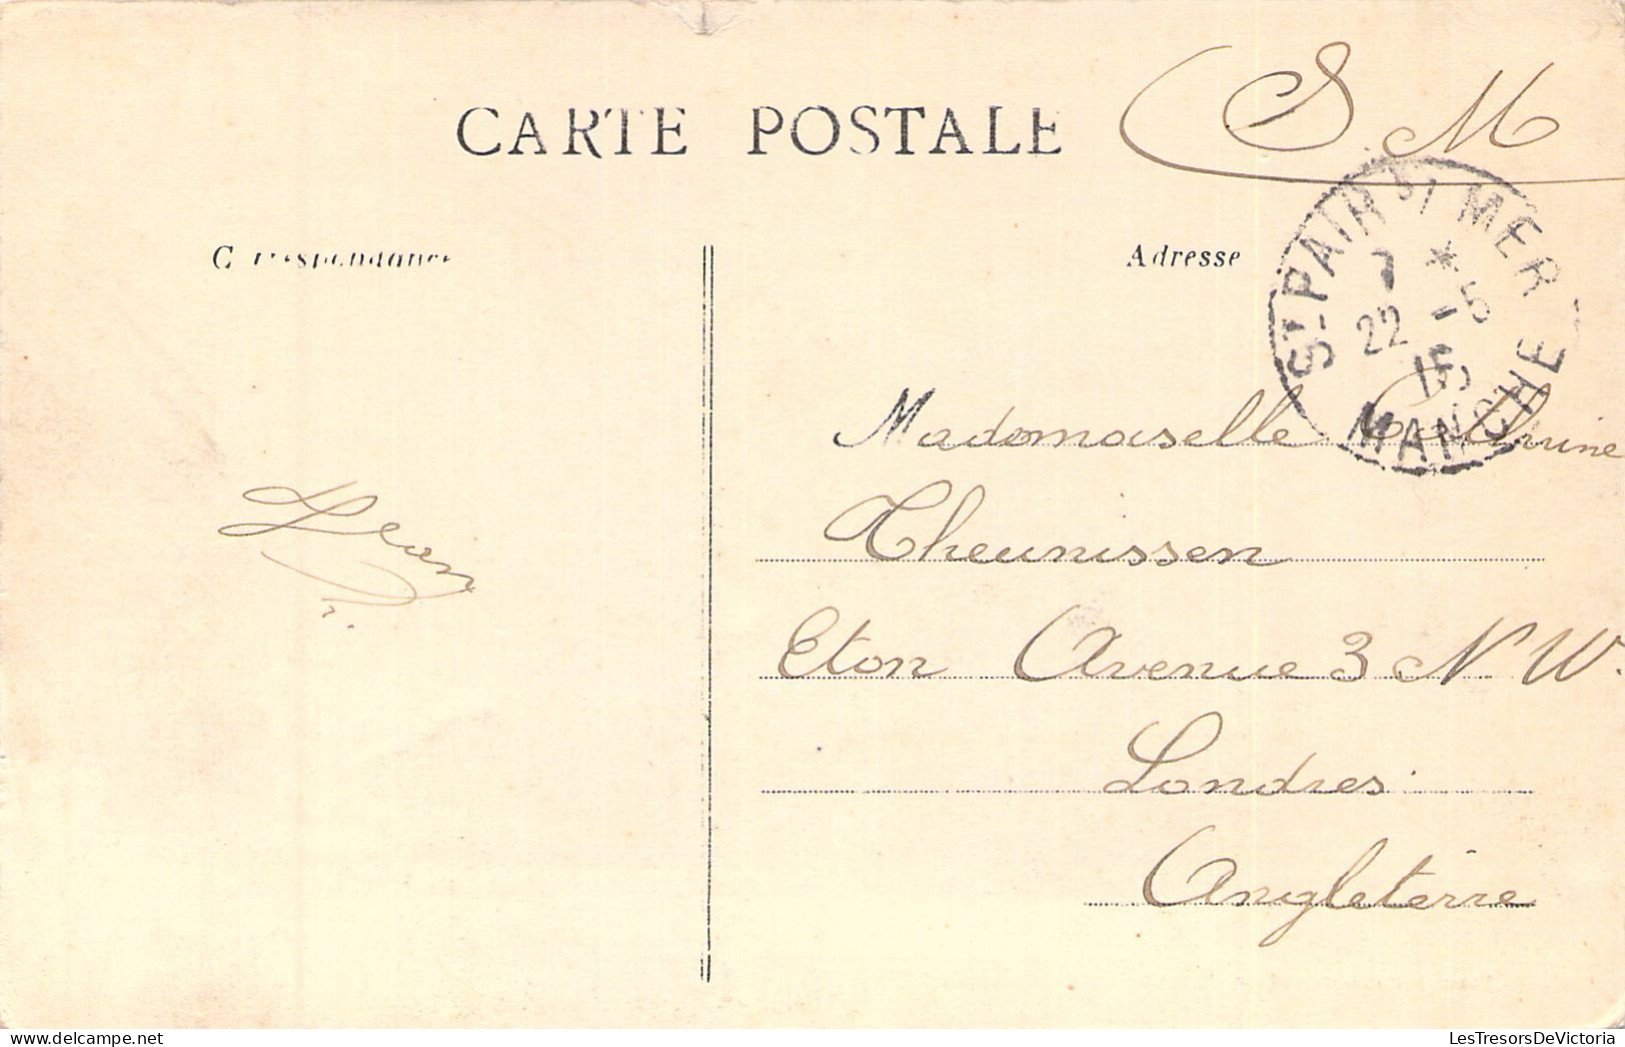 CARTE POSTALE
S. M
Correspondance
Adresse
ST-PAIR S/ MER
7 *
22 -5
15
MANCHE
Mademoiselle
Theunissen
Eton Avenue 3 N. W.
Londres
Angleterre
Jean
LesTresorsDeVictoria